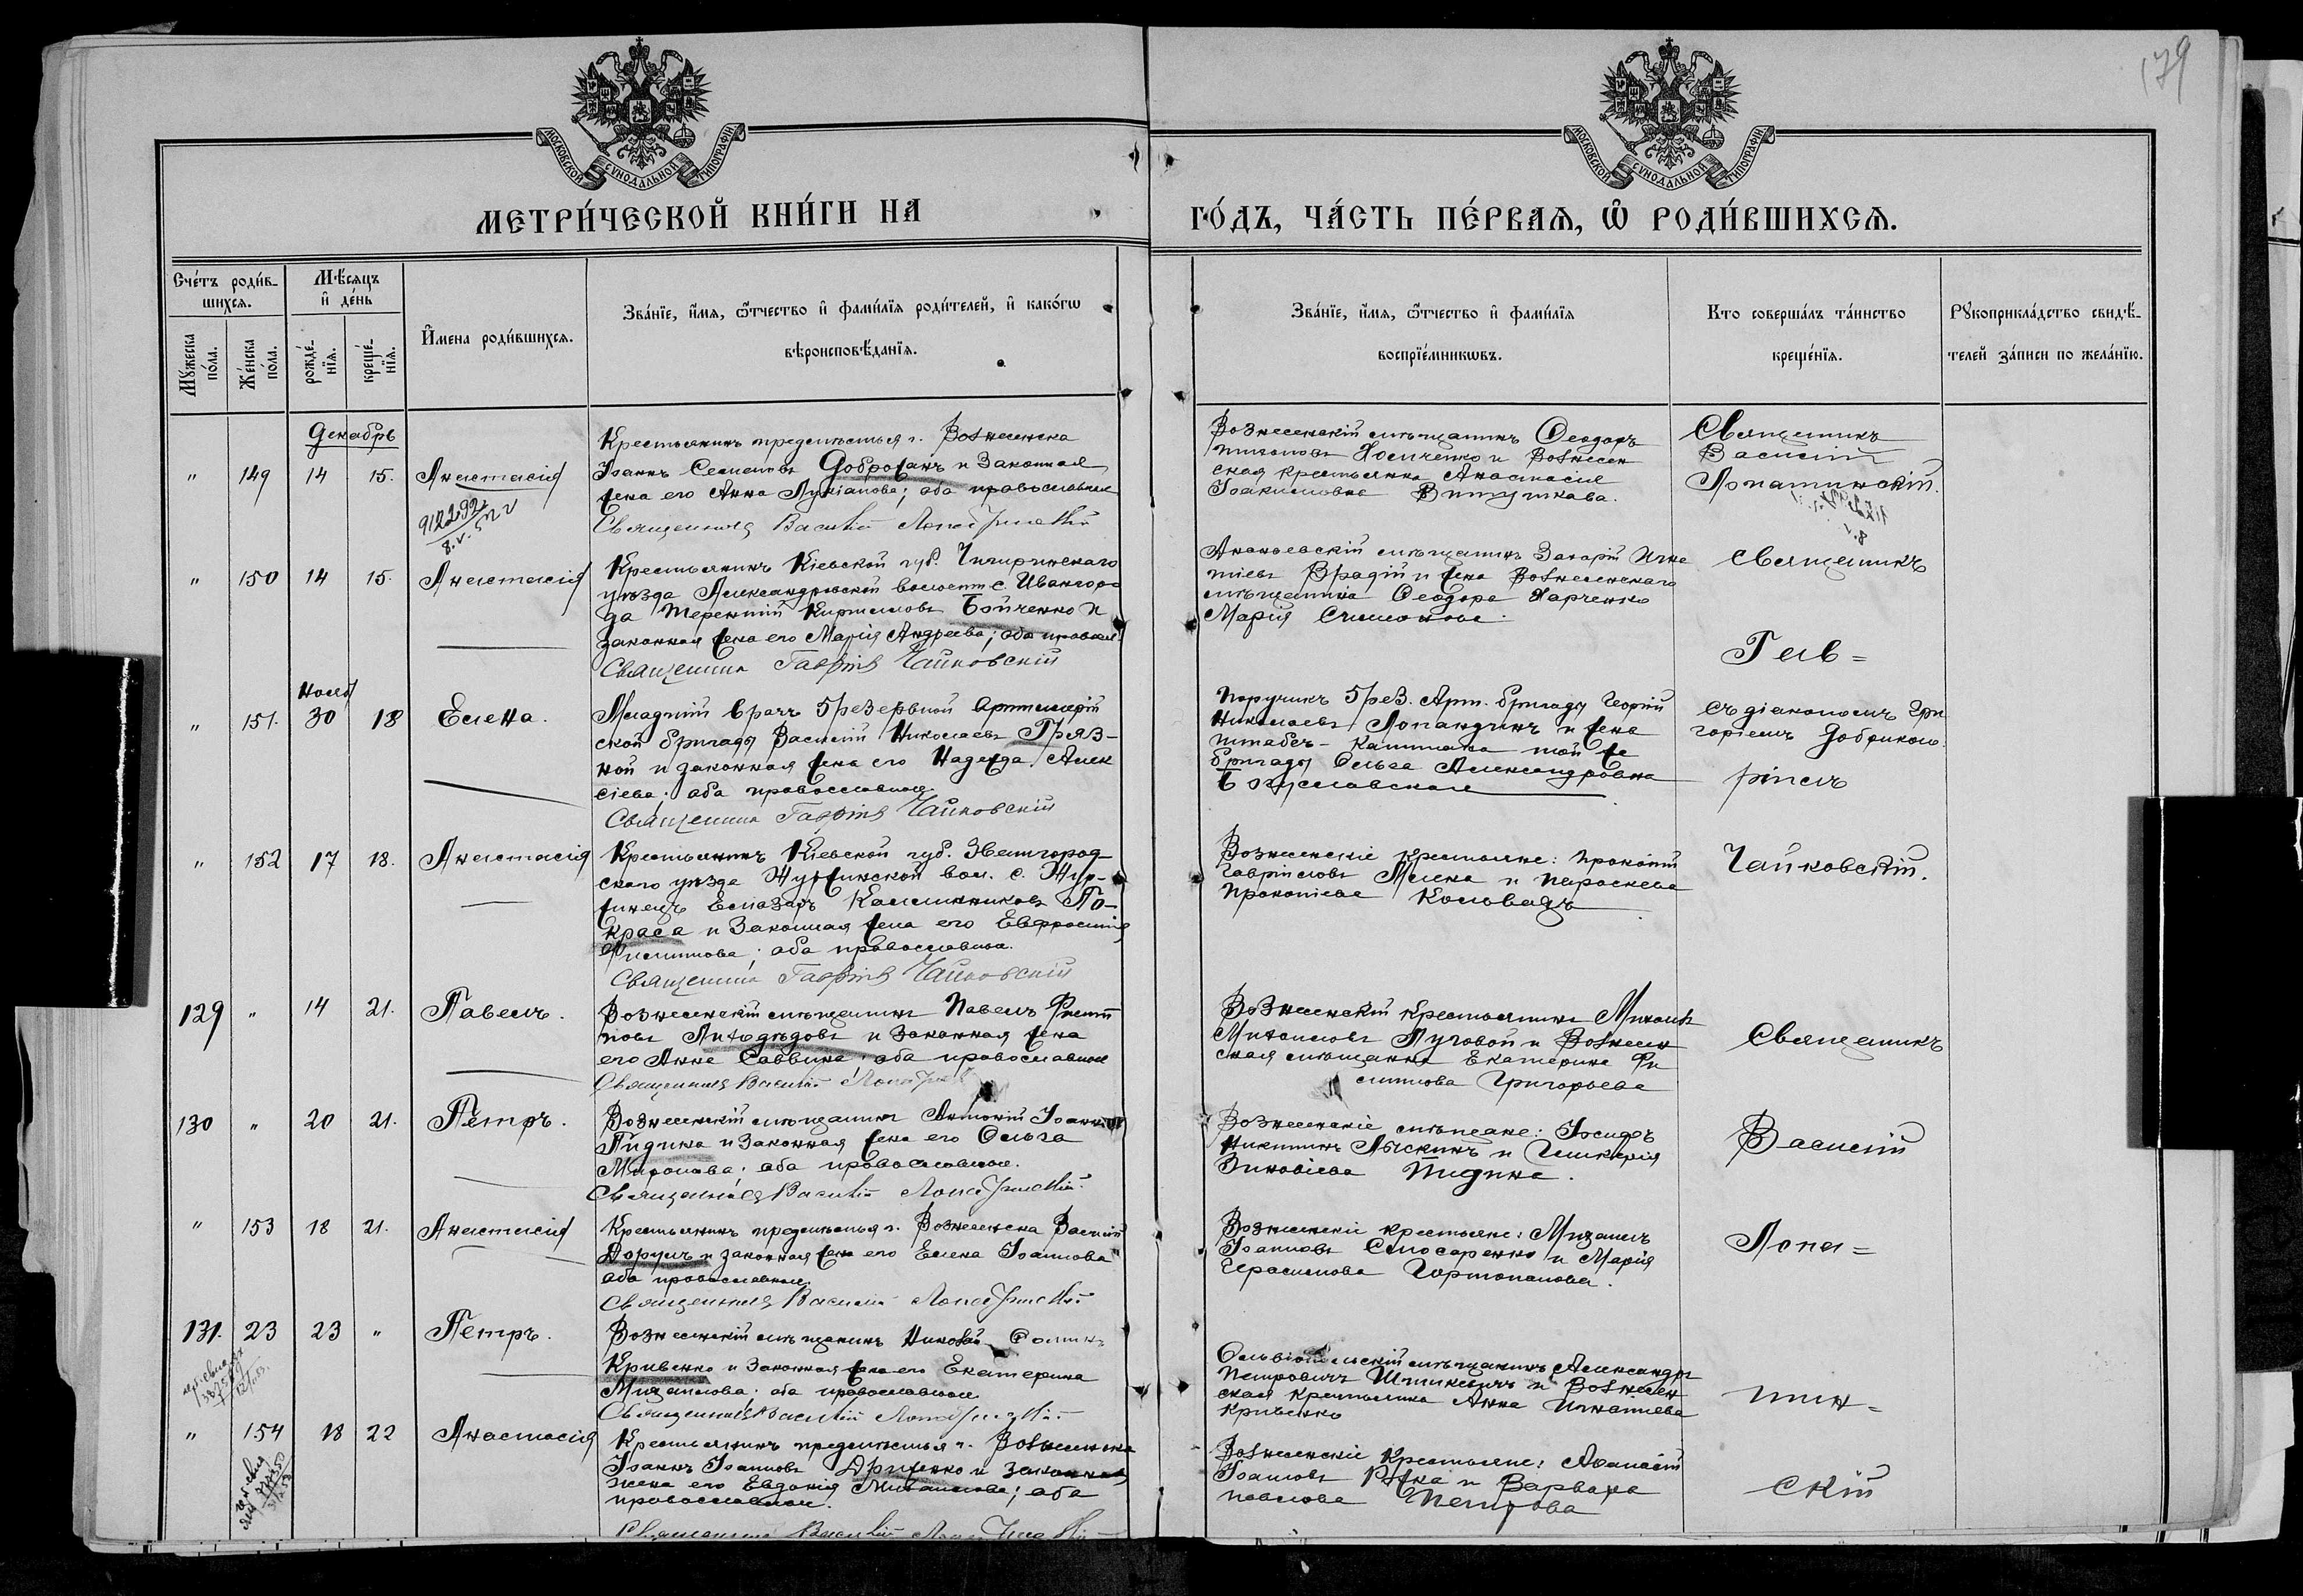 179
МОСКОВСКОЙ СУНОДАЛЬНОЙ ТИПОГРАФІИ
МОСКОВСКОЙ СУНОДАЛЬНОЙ ТИПОГРАФІИ
МЕТРИ́ЧЕСКОЙ КНИ́ГИ НА
ГО́ДЪ, ЧА́СТЬ ПЕ́РВАѦ, Ѡ҆ РОДИ́ВШИХСѦ.
Сче́тъ роди́в-
шихсѧ.
Мѣ́сѧцъ
и҆ де́нь
Мꙋ́жеска
по́ла.
Же́нска
по́ла.
рожде́-
нїѧ.
креще́-
нїѧ.
И҆мена роди́вшихсѧ.
Зва́нїе, и҆́мѧ, ѻ҆́тчество и҆ фами́лїѧ роди́телей, и҆ како́гѡ
вѣроисповѣ́данїѧ.
Зва́нїе, и҆́мѧ, ѻ҆́тчество и҆ фами́лїѧ
воспрїе́мникѡвъ.
Кто соверша́лъ та́инство
креще́нїѧ.
Рꙋкоприкла́дство свидѣ́-
телей за́писи по жела́нїю.
Декабрь
" 149 14 15. Анастасія
Крестьянинъ предмѣстья г. Вознесенска
Іоаннъ Семеновъ Доброжанъ и законная
жена его Анна Лукіанова; оба православные
Священникъ Василій Лопатинскій
Вознесенскій мѣщанинъ Ѳеодоръ
и Вознесен
ская крестьянка Анастасія
Іоакимовна
Священникъ
Василій
Лопатинскій.
" 150 14 15. Анастасія
Крестьянинъ Кіевской губ. Чигиринскаго
уѣзда Александровской волости с. Ивангоро
да Терентій Кирилловъ Бойченко и
законная жена его Марія Андреева; оба правосл.
Священникъ Гавріилъ Чайковскій
Ананьевскій мѣщанинъ Захарій Игна
тіевъ Врадій и жена Вознесенскаго
мѣщанина Ѳеодора Харченко
Марія Симонова.
Священникъ
Гав=
Нояб
" 151. 30 18 Елена.
Младшій врачъ 5 резервной артиллерій
ской бригады Василій Николаевъ Гряз-
ной и законная жена его Надежда Алек
сіева; оба православные.
Священникъ Гавріилъ Чайковскій
Поручикъ 5 рез. Арт. бригады Георгій
Николаевъ Лопандинъ и жена
штабсъ-капитана той же
бригады Ольга Александровна
Богуславская
съ діакономъ Гри
горіемъ
ріилъ
" 152 17 18. Анастасія
Крестьянинъ Кіевской губ. Звенигород-
скаго уѣзда Журжинской вол. с. Жур-
жинецъ Елеазаръ Калинниковъ По-
краса и законная жена его Евфросинія
Филиппова; оба православные.
Священникъ Гавріилъ Чайковскій
Вознесенскіе крестьяне: Прокопій
Гавріиловъ и Параскева
Прокопіева
Чайковскій.
129 " 14 21. Павелъ.
Вознесенскій мѣщанинъ Павелъ Филип
повъ Лиходѣдовъ и законная жена
его Анна Саввина; оба православные
Священникъ Василій
Вознесенскій крестьянинъ Михаилъ
Михаиловъ Луговой и Вознесен
ская мѣщанка Екатерина Фи
липпова Григорьева
Священникъ
130 " 20 21. Петръ.
Вознесенскій мѣщанинъ Антоній Іоанновъ
Пидина и законная жена его Ольга
Миронова; оба православные.
Священникъ Василій Лопатинскій.
Вознесенскіе мѣщане: Іосифъ
Никитинъ Лыскинъ и Гликерія
Зиновіева Пидина.
Василій
" 153 18 21. Анастасія
Крестьянинъ предмѣстья г. Вознесенска Василій
и законная жена его Елена Іоаннова
оба православные.
Священникъ Василій Лопатинскій
Вознесенскіе крестьяне: Михаилъ
Іоанновъ Слюсаренко и Марія
Герасимова
Лопа=
131. 23 23 " Петръ.
Вознесенскій мѣщанинъ Николай
Кривенко и законная жена его Екатерина
Михаилова; оба православные
Священникъ Василій Лопатинскій
Ольвіопольскій мѣщанинъ Александръ
Петровичъ и Вознесен
ская крестьянка Анна Игнатіева
Кривенко
тин=
" 154 18 22 Анастасія
Крестьянинъ предмѣстья г. Вознесенска
Іоаннъ Іоанновъ и законная
жена его Евдокія Михаилова; оба
православные.
Священникъ Василій
Вознесенскіе крестьяне: Аѳанасій
Іоанновъ и Варвара
Павлова Петрова
скій